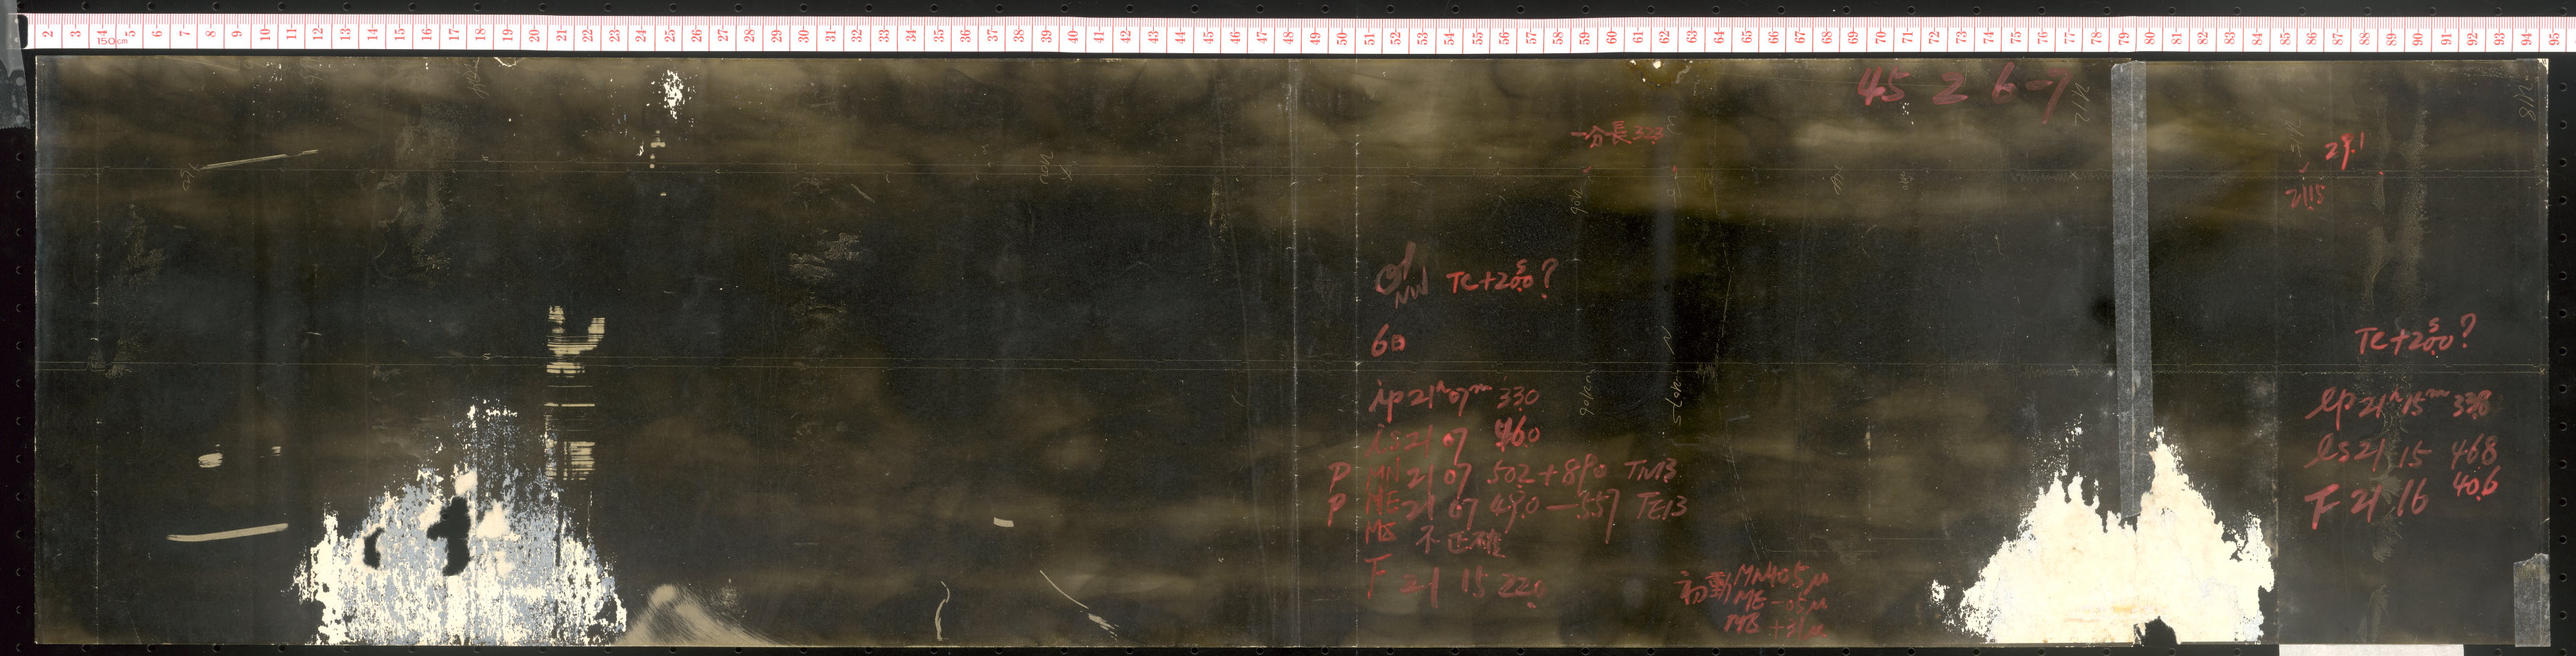 2 3 4 5 6 7 8 9 10 11 12 13 14 15 16 17 18 19 20 21 22 23 24 25 26 27 28 29 30 31 32 33 34 35 36 37 38 39 40 41 42 43 44 45 46 47 48 49 50 51 52 53 54 55 56 57 58 59 60 61 62 63 64 65 66 67 68 69 70 71 72 73 74 75 76 77 78 79 80 81 82 83 84 85 86 87 88 89 90 91 92 93 94 95
150cm
45 2 6-7
一分長 323
29.1
2115
NW TC+20.0s?
6日
ip 21h07m 33.0
is 21 07 46.0
P MN 21 07 50.2 +890 TN13
P ME 21 07 49.0 -557 TE13
MZ 不正確
F 21 15 22.0
初動 MN+0.5μ
ME -05μ
MZ +31μ
TC+20.0s?
ep 21h15m 33.8
es 21 15 46.8
F 21 16 40.6